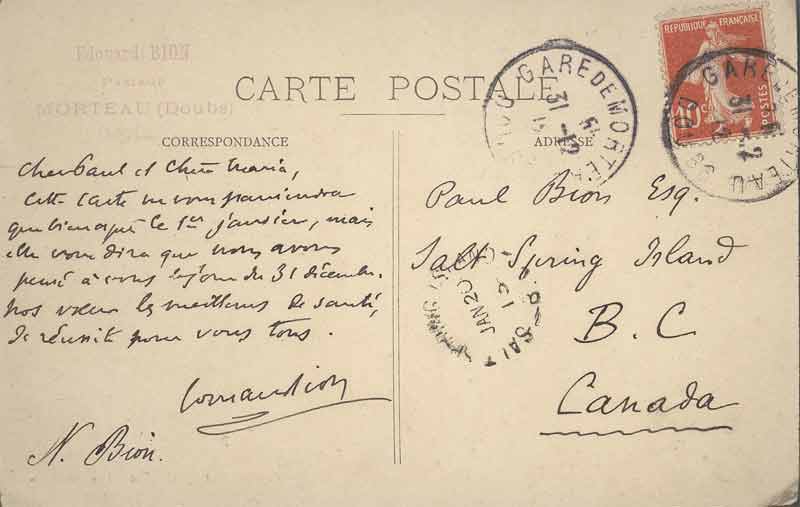 Edouard BION
Pasteur
MORTEAU (Doubs)
CARTE POSTALE
CORRESPONDANCE
ADRESSE
RÉPUBLIQUE FRANÇAISE
10c
POSTES
GARE DE MORTEAU
31 -12
DOUBS
GARE DE MORTEAU
31 -12
DOUBS
Cher Paul et Chère Maria,
Cette carte ne vous parviendra
que bien après le 1er janvier, mais
elle vous dira que nous avons
pensé à vous le jour du 31 décembre.
Nos vœux les meilleurs de santé,
de réussite pour vous tous.
N. Bion.
Paul Bion Esq.
Salt Spring Island
B. C
Canada
SALT
JAN 20
13
B.C.